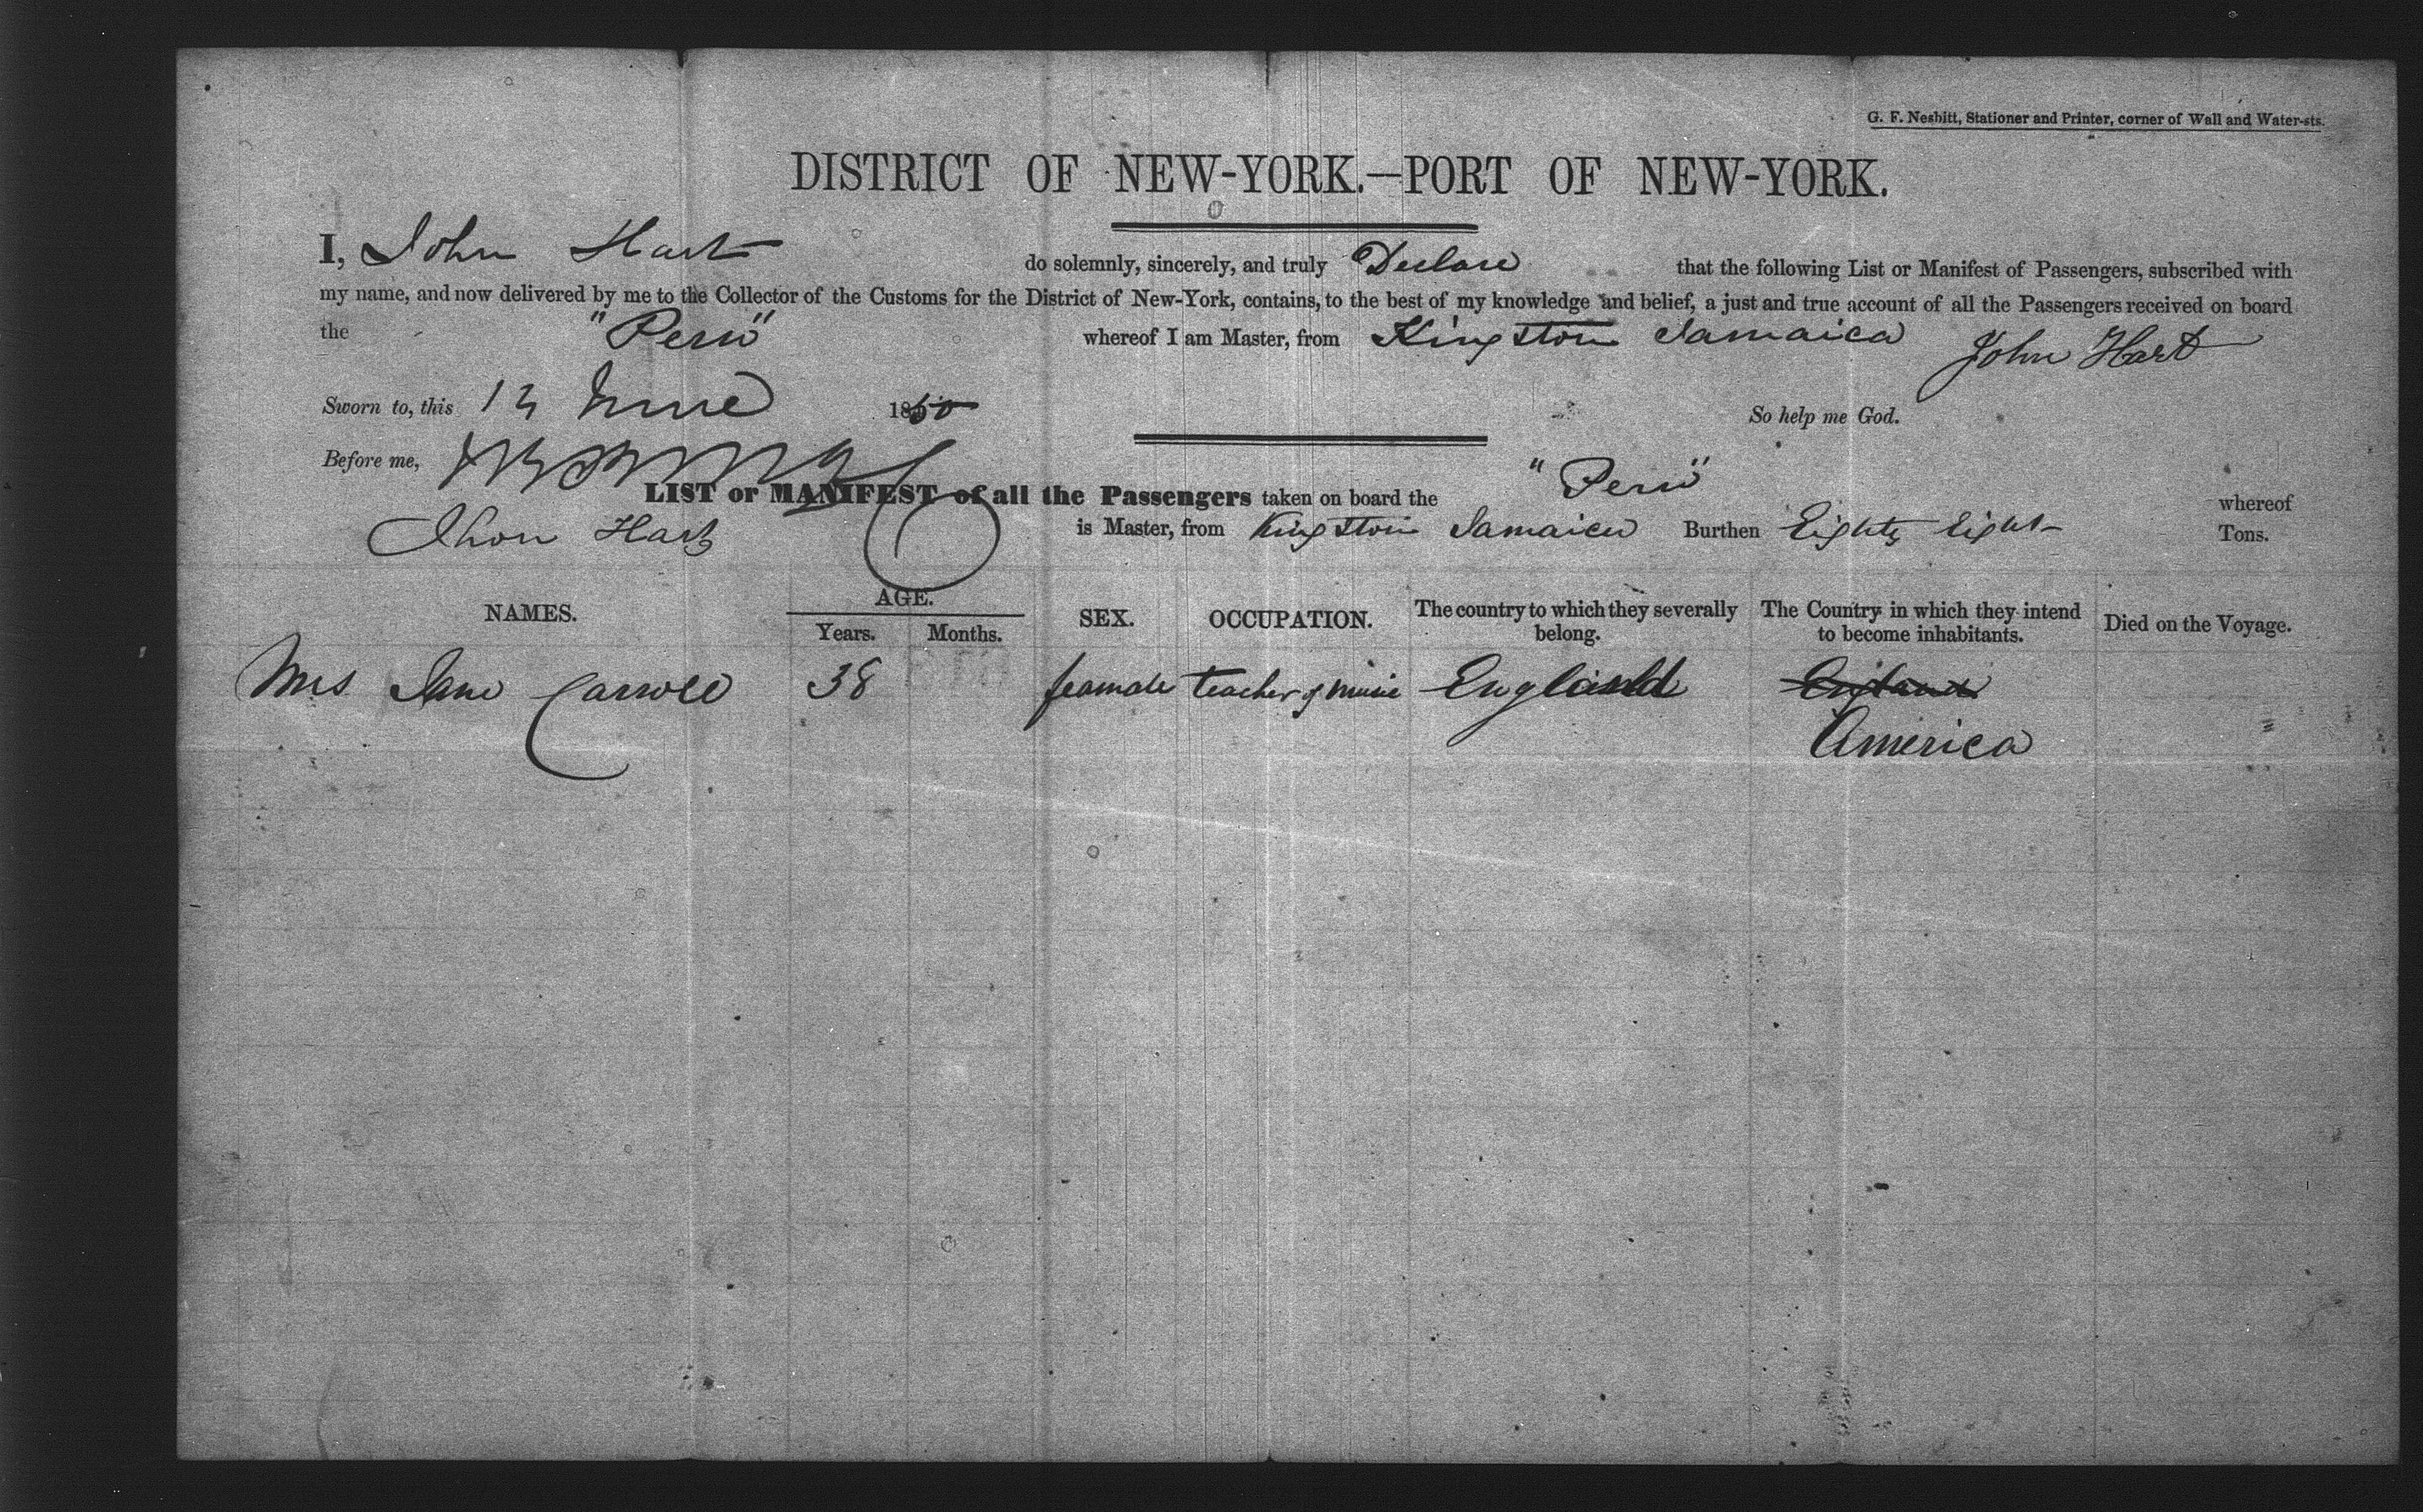 G. F. Nesbitt, Stationer and Printer, corner of Wall and Water-sts.
DISTRICT OF NEW-YORK.—PORT OF NEW-YORK.
I, John Hart do solemnly, sincerely, and truly Declare that the following List or Manifest of Passengers, subscribed with
my name, and now delivered by me to the Collector of the Customs for the District of New-York, contains, to the best of my knowledge and belief, a just and true account of all the Passengers received on board
the "Peru" whereof I am Master, from Kingston Jamaica John Hart
Sworn to, this 13 June 1850 So help me God.
Before me,
LIST or MANIFEST of all the Passengers taken on board the "Peru" whereof
Jhon Hart is Master, from Kingston Jamaica Burthen Eighty Eight Tons.
NAMES. AGE. SEX. OCCUPATION. The country to which they severally belong. The Country in which they intend to become inhabitants. Died on the Voyage.
Years. Months.
Mrs Jane Carroll 38 feamale teacher of music England England
America